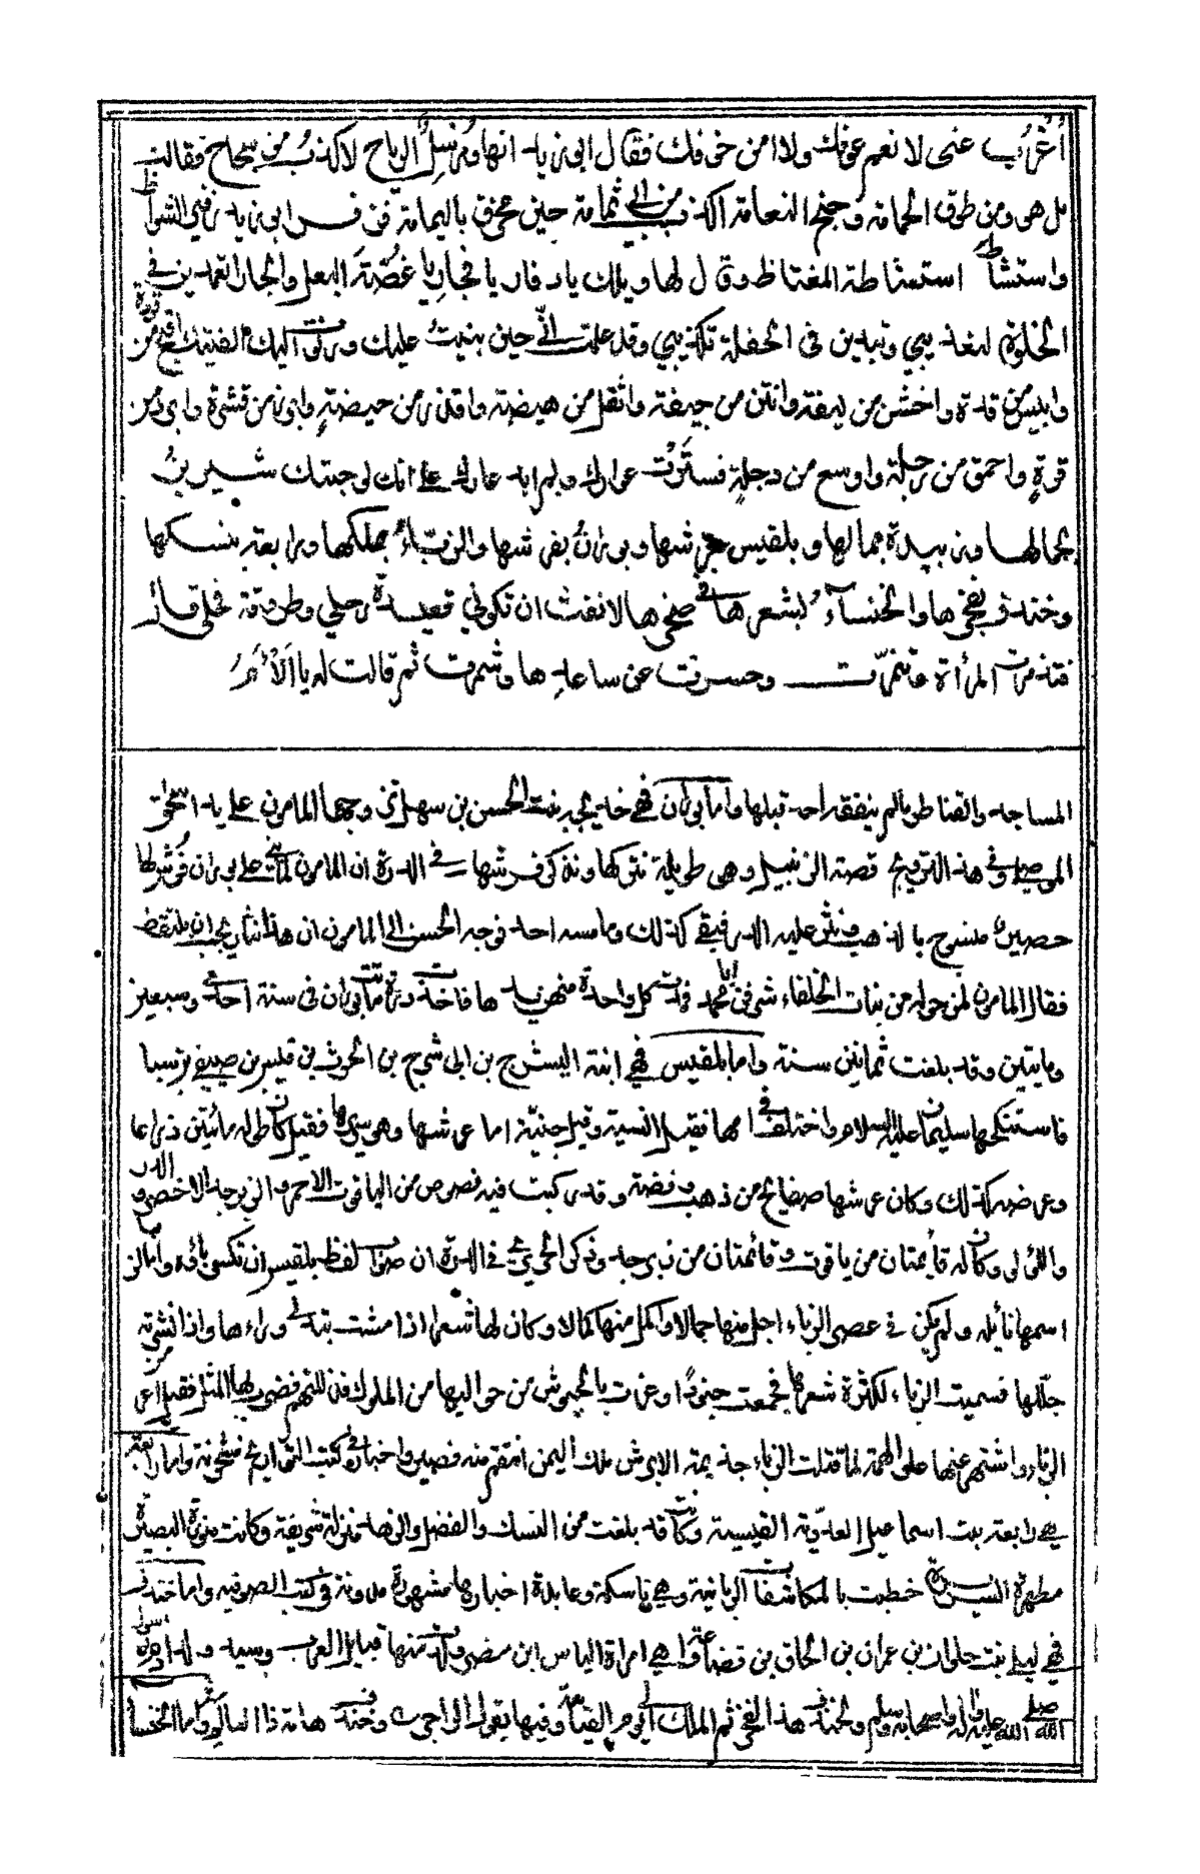 اُغْرُب عنى لا نعم عوفك ولا امن خوفك فقال ابو زيد انها ومُرسِلُ الرياح لاكذبُ من سجاح فقالت
بل هو ومن طوق الحمامة وجنح النعامة اكذب من ابى ثمامة حين مخرق باليمامة فزفر ابو زيد زفير الشواظ
واستشاط استشاطة المغتاظ وقال لها ويلك يا دفار يا فجار يا غُصّةَ البعل والجار اتعمدين فى
الخلوة لتعذيبى وتبدين فى الحفلة تكذيبى وقد علمت انّى حين بنيتُ عليك ورنوت اليك الفيتك اقبح من قردة
وايبس من قدة واخشن من ليفة وانتن من جيفة واثقل من هيضة واقذر من حيضةٍ وابرز من قشرة وابرد من
قرةٍ واحمق من رجلة واوسع من دجلةٍ فسترتُ عوارك ولم ابد عارك على انك لو حبتك شيرينُ
بجمالها وزبيدة بمالها وبلقيس بعرشها وبورانُ بفرشها والزبّاءُ بملكها ورابعة بنسكها
وخندف بفخرها والخنساءُ بشعرها فى صخرها لانفت ان تكونى قعيدة رحلى وطروقة فحلى قال
فتذمرت المرأة وتنمّرت وحسرت عن ساعدها وشمرت ثم قالت له يا اَلْأَمَ
المساجد والقناطر مالم ينفقه احد قبلها واما بوران فهى خديجة بنت الحسن بن سهل تزوجها المامون على يد اسحق
الموصلى وفى هذا التزويج قصة الزنبيل وهى طويلة نتركها وذكر فرشها فى الدرة ان المامون لما بنى على بوران فُرش لها
حصير منسوج بالذهب ونثر عليه الدر فبقى كذلك وما مسه احد فوجه الحسن الى المامون ان هذا نثار يجب ان يلتقط
فقال المامون لمن حوله من بنات الخلفاء شرفن ابا محمد فمدت كل واحدة منهن يدها فاخذت درة ماتت بوران فى سنة احدى وسبعين
ومايتين وقد بلغت ثمانين سنة واما بلقيس فهى ابنة اليشرح بن ابى شرح بن الحرث بن قيس بن صيفى بن سبا
فاستنكحها سليمان عليه السلام واختلف فى امها فقيل انسية وقيل جنية اما عرشها وهو سريرها فقيل كان طوله مائتين ذراعا
وعرضه كذلك وكان عرشها صفايح من ذهب وفضة وقد ركبت فيه فصوص من الياقوت الاحمر والزبرجد الاخضر والدر
واللؤلؤ وكان له قائمتان من ياقوت وقائمتان من زبرجد وذكر الحريرى فى الدرة ان صواب لفظ بلقيس ان تكسر باؤه واما الزباء
اسمها نائلة ولم يكن فى عصر الزباء اجل منها جمالا واكمل منها كمالا وكان لها شعر اذا مشت بتدلى وراءها واذا نشرته
جللها فسميت الزباء لكثرة شعرها فجمعت جنودا وغزت بالجيوش من حواليها من الملوك فذللتهم فضرب لها المثل فقيل اعز من
الزباء واشتهر عنها علو الهمة لما قتلت الزباء جذيمة الابرش ملك اليمن انتقم منه قصير واخباره فى كتب التواريخ مشحونة واما رابعة
هى رابعة بنت اسماعيل العدوية القيسية وكانت قد بلغت من النسك والفضل والزهد منزلة شريفة وكانت منورة البصيرة
مطهرة السريرة خطبت بالمكاشفات الربانية وهى ناسكة وعابدة اخبارها مشهورة مدونة فى كتب الصوفية واما خندف
فهى ليلى بنت حلوان بن عمران بن الحاف بن قضاعة وهى امراة الياس ابن مضر ولدت منها قبايل العرب وسيد ولد ادم رسول
الله صلى الله عليه واله واصحابه وسلم ولخندف هذا الفخر ثم الملك الى يوم القيامة وفيها يقول الراجز وخندف هامة ذا العالم واما الخنساء